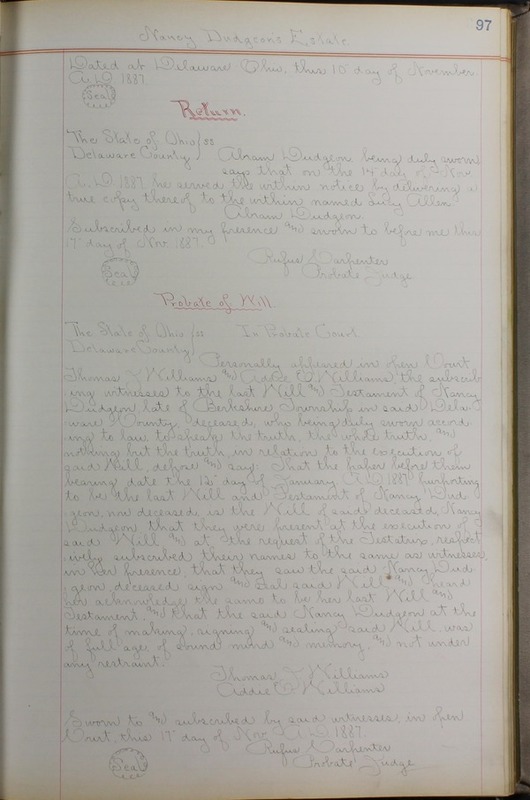 97
Nancy Dudgeon's Estate
Dated at Delaware Ohio, this 10" day of November
A.D. 1887.
Seal
Return.
The State of Ohio / ss
Delaware County ) Abram Dudgeon being duly sworn
says that on the 14" day of Nov.
A.D. 1887 he served the within notice by delivering a
true copy thereof to the within named Allen
Abram Dudgeon.
Subscribed in my presence and sworn to before me this
17" day of Nov. 1887.
Rufus Carpenter
Seal Probate Judge
Probate of Will
The State of Ohio / ss In Probate Court
Delaware County
Personally appeared in open Court
Thomas J. Williams and Addie Williams, the subscrib
ing witnesses to the last Will and Testament of Nancy
Dudgeon, late of Berkshire Township in said Dela-
ware County, deceased, who being duly sworn accord
ing to law to speak the truth, the whole truth, and
nothing but the truth, in relation to the execution of
said Will, depose and say: That the paper before them
bearing date the 12" day of January A.D. 1887 purporting
to be the last Will and Testament of Nancy Dud
geon, now deceased, is the Will of said deceased, Nancy
Dudgeon that they were present at the execution of
said Will and at the request of the Testatrix, respect
ively subscribed their names to the same as witnesses,
in her presence, that they saw the said Nancy Dud
geon, deceased sign and seal said Will and heard
her acknowledge the same to be her last Will and
Testament, and that the said Nancy Dudgeon at the
time of making, signing and sealing said Will, was
of full age, of sound mind and memory, and not under
any restraint.
Thomas J. Williams
Addie Williams
Sworn to and subscribed by said witnesses, in open
Court, this 17" day of Nov. A.D. 1887.
Rufus Carpenter
Seal Probate Judge